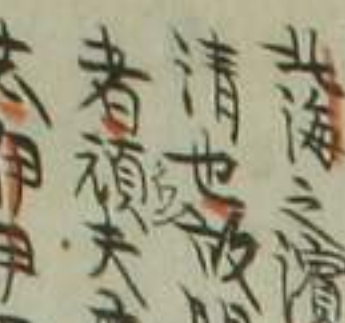 北海之濱
清也故
者頑夫
志伊尹